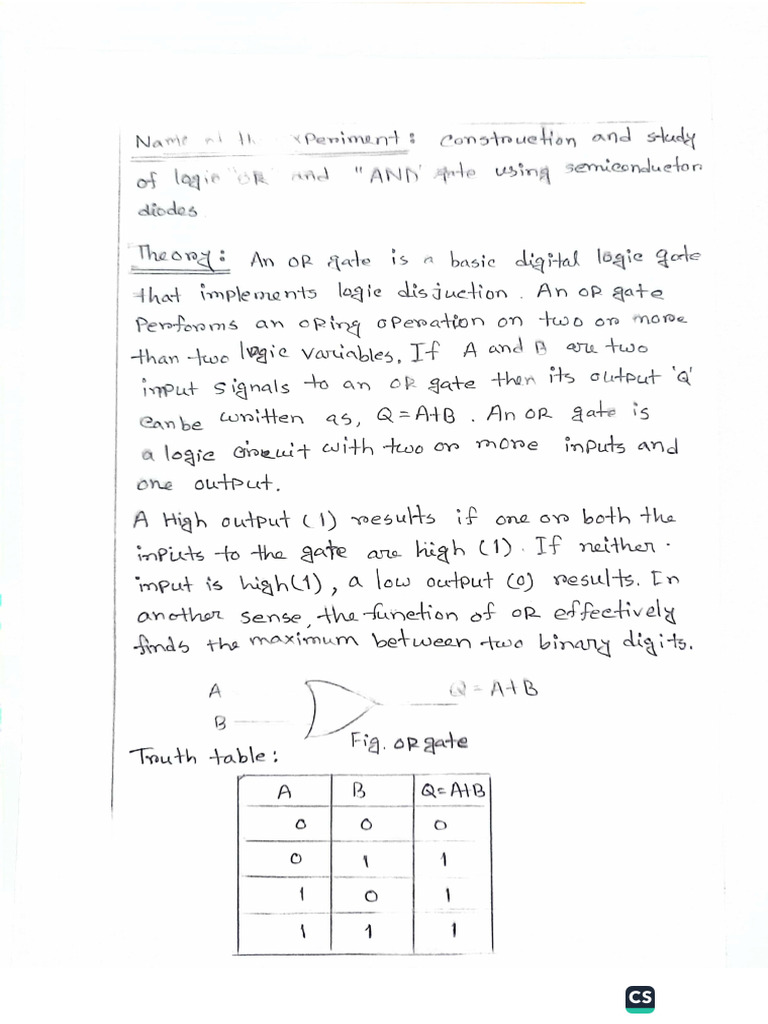 Name of the experiment: construction and study
of logic "OR" and "AND" gate using semiconductor
diodes
Theory: An OR gate is a basic digital logic gate
that implements logic disjuction. An OR gate
Performs an ORing operation on two or more
than two logic variables, If A and B are two
input signals to an OR gate then its output 'Q'
can be written as, Q=A+B. An OR gate is
a logic circuit with two or more inputs and
one output.
A High output (1) results if one or both the
inputs to the gate are high (1). If neither
input is high(1), a low output (0) results. In
another sense, the function of OR effectively
finds the maximum between two binary digits.
A Q = A+B
B
Fig. OR gate
Truth table:
A B Q=A+B
0 0 0
0 1 1
1 0 1
1 1 1
CS